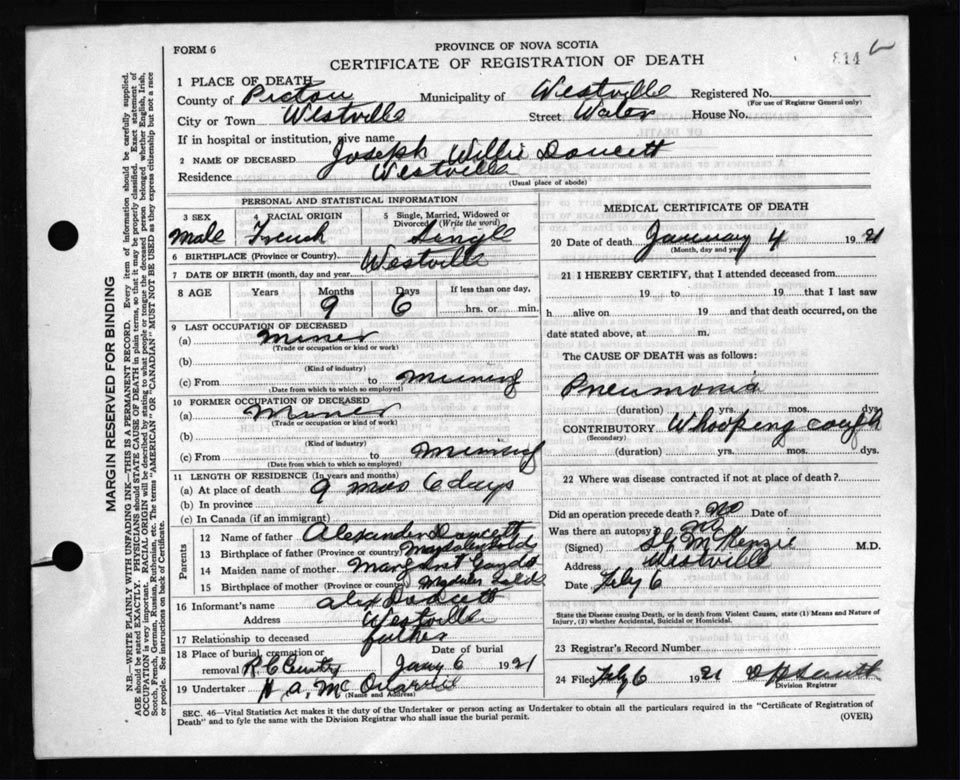 FORM 6
PROVINCE OF NOVA SCOTIA
CERTIFICATE OF REGISTRATION OF DEATH
814
1 PLACE OF DEATH
County of Pictou Municipality of Westville Registered No.
(For use of Registrar General only)
City or Town Westville Street Water House No.
If in hospital or institution, give name
2 NAME OF DECEASED Joseph Willie Doucett
Residence Westville
(Usual place of abode)
PERSONAL AND STATISTICAL INFORMATION
3 SEX 4 RACIAL ORIGIN 5 Single, Married, Widowed or Divorced (Write the word)
Male French Single
6 BIRTHPLACE (Province or Country) Westville
7 DATE OF BIRTH (month, day and year)
8 AGE Years Months Days If less than one day,
9 6 hrs. or min.
9 LAST OCCUPATION OF DECEASED
(a) Miner
(Trade or occupation or kind or work)
(b)
(Kind of industry)
(c) From to Mining
(Date from which to which so employed)
10 FORMER OCCUPATION OF DECEASED
(a) Miner
(Trade or occupation or kind or work)
(b)
(Kind of industry)
(c) From to Mining
(Date from which to which so employed)
11 LENGTH OF RESIDENCE (In years and months)
(a) At place of death 9 mos 6 days
(b) In province
(c) In Canada (if an immigrant)
Parents
12 Name of father Alexander Doucett
13 Birthplace of father (Province or country)
14 Maiden name of mother Margaret
15 Birthplace of mother (Province or country)
16 Informant's name Alex Doucett
Address Westville
17 Relationship to deceased father
18 Place of burial, cremation or Date of burial
removal R C Jany 6 1921
19 Undertaker H A
(Name and Address)
MEDICAL CERTIFICATE OF DEATH
20 Date of death January 4 1921
(Month, day and year)
21 I HEREBY CERTIFY, that I attended deceased from
19 to 19 that I last saw
h alive on 19 and that death occurred, on the
date stated above, at m.
The CAUSE OF DEATH was as follows:
Pneumonia
(duration) yrs. mos. dys.
CONTRIBUTORY Whooping cough
(Secondary)
(duration) yrs. mos. dys.
22 Where was disease contracted if not at place of death?
Did an operation precede death? no Date of
Was there an autopsy? no
(Signed) McKenzie M.D.
Address Westville
Date Feby 6
State the Disease causing Death, or in death from Violent Causes, state (1) Means and Nature of
Injury, (2) whether Accidental, Suicidal or Homicidal.
23 Registrar's Record Number
24 Filed Feby 6 1921
Division Registrar
SEC. 46—Vital Statistics Act makes it the duty of the Undertaker or person acting as Undertaker to obtain all the particulars required in the "Certificate of Registration of
Death" and to fyle the same with the Division Registrar who shall issue the burial permit.
(OVER)
MARGIN RESERVED FOR BINDING
N.B.—WRITE PLAINLY WITH UNFADING INK—THIS IS A PERMANENT RECORD. Every item of information should be carefully supplied.
AGE should be stated EXACTLY. PHYSICIANS should STATE CAUSE OF DEATH in plain terms, so that it may be properly classified. Exact statement of
OCCUPATION is very important. RACIAL ORIGIN will be described by stating to what people or tongue the deceased person belonged whether English, Irish,
Scotch, French, German, Russian, Ruthenian, etc. The terms "AMERICAN" OR "CANADIAN" MUST NOT BE USED as they express citizenship but not a race
or people. See instructions on back of Certificate.